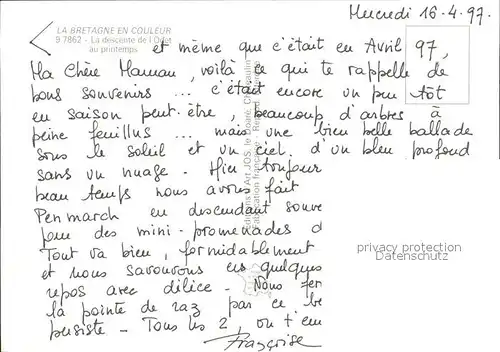 Mercredi 16-4.97.
LA BRETAGNE EN COULEUR
9 7862 - La descente de l'Odet
au printemps
et même que c'était en Avril 97,
Ma Chère Maman, voilà ce qui te rappelle de
bons souvenirs ... c'était encore un peu tôt
en saison peut-être, beaucoup d'arbres à
peine feuillus ... mais une bien belle ballade
sous le soleil et un ciel d'un bleu profond
sans un nuage - Hier toujours
beau temps nous avons fait
Penmarch en descendant souve
pour des mini-promenades d
Tout va bien, formidablement
et nous savourons ces quelques
repos avec délice - Nous fer
la pointe de raz par ce be
persiste - Tous les 2, on t'em
Françoise
Editions d'Art JOS, le Doaré, Châteaulin
Fabrication française - Repr.
privacy protection
Datenschutz